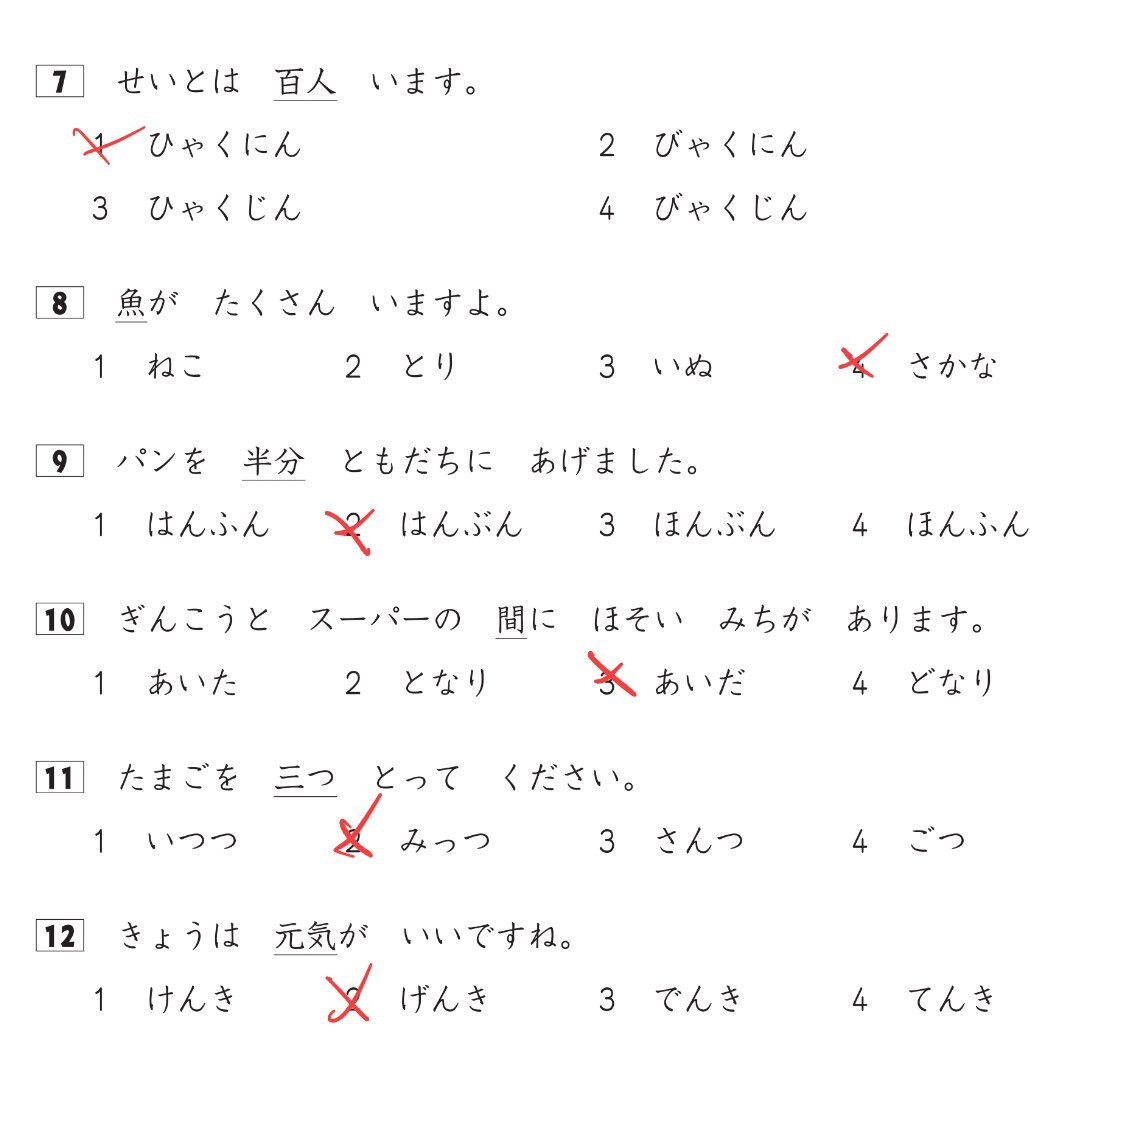 7 せいとは 百人 います。
1 ひゃくにん 2 びゃくにん
3 ひゃくじん 4 びゃくじん
8 魚が たくさん いますよ。
1 ねこ 2 とり 3 いぬ 4 さかな
9 パンを 半分 ともだちに あげました。
1 はんふん 2 はんぶん 3 ほんぶん 4 ほんふん
10 ぎんこうと スーパーの 間に ほそい みちが あります。
1 あいた 2 となり 3 あいだ 4 どなり
11 たまごを 三つ とって ください。
1 いつつ 2 みっつ 3 さんつ 4 ごつ
12 きょうは 元気が いいですね。
1 けんき 2 げんき 3 でんき 4 てんき